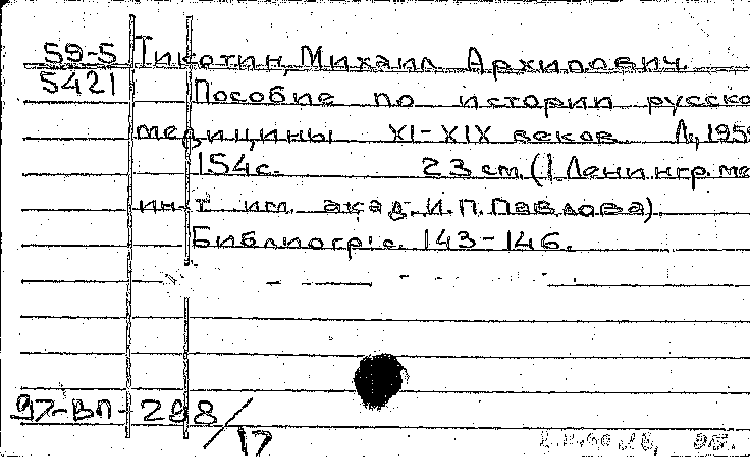 59-5 Тикотин, Михаил Архипович.
5421 Пособие по истории русско
медицины XI-XIX веков. Л., 195
154 с. 23 см. (1 Ленингр. ме
ин-т им. акад. И. П. Павлова).
Библиогр: с. 143-146.
97-ВП-298/17